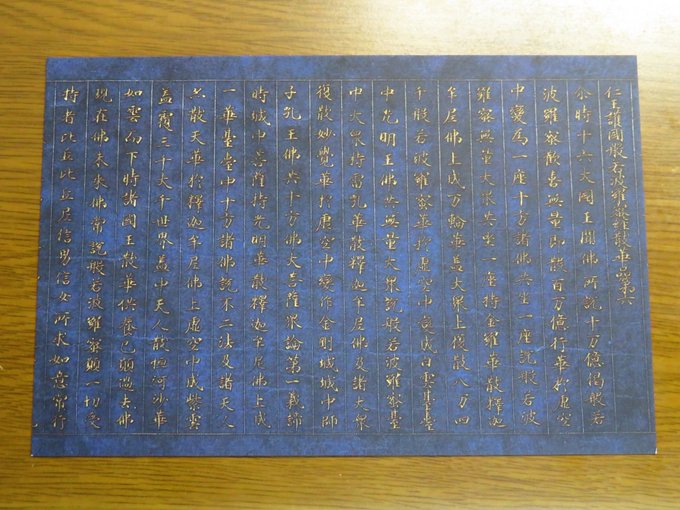 仁王護國般若波羅蜜經散華品第六
尒時十六大國王聞佛所說十万億偈般若
波羅蜜歡喜無量即散百万億行華於虛空
中變為一座十方諸佛共坐一座說般若波
羅蜜無量大眾共坐一座持金羅華散釋迦
牟尼佛上成万輪華蓋大眾上復散八万四
千般若波羅蜜華於虛空中變成白雲臺臺
中光明王佛共無量大眾說般若波羅蜜臺
中大眾持雷吼華散釋迦牟尼佛及諸大眾
復散妙覺華於虛空中變作金剛城城中師
子吼王佛共十方佛大菩薩眾論第一義諦
時城中菩薩持光明華散釋迦牟尼佛上成
一華臺臺中十方諸佛說不二法及諸天人
亦散天華於釋迦牟尼佛上虛空中成紫雲
蓋覆三千大千世界蓋中天人散恒河沙華
如雲而下時諸國王散華供養已願過去佛
現在佛未來佛常說般若波羅蜜願一切受
持者比丘比丘尼信男信女所求如意常行